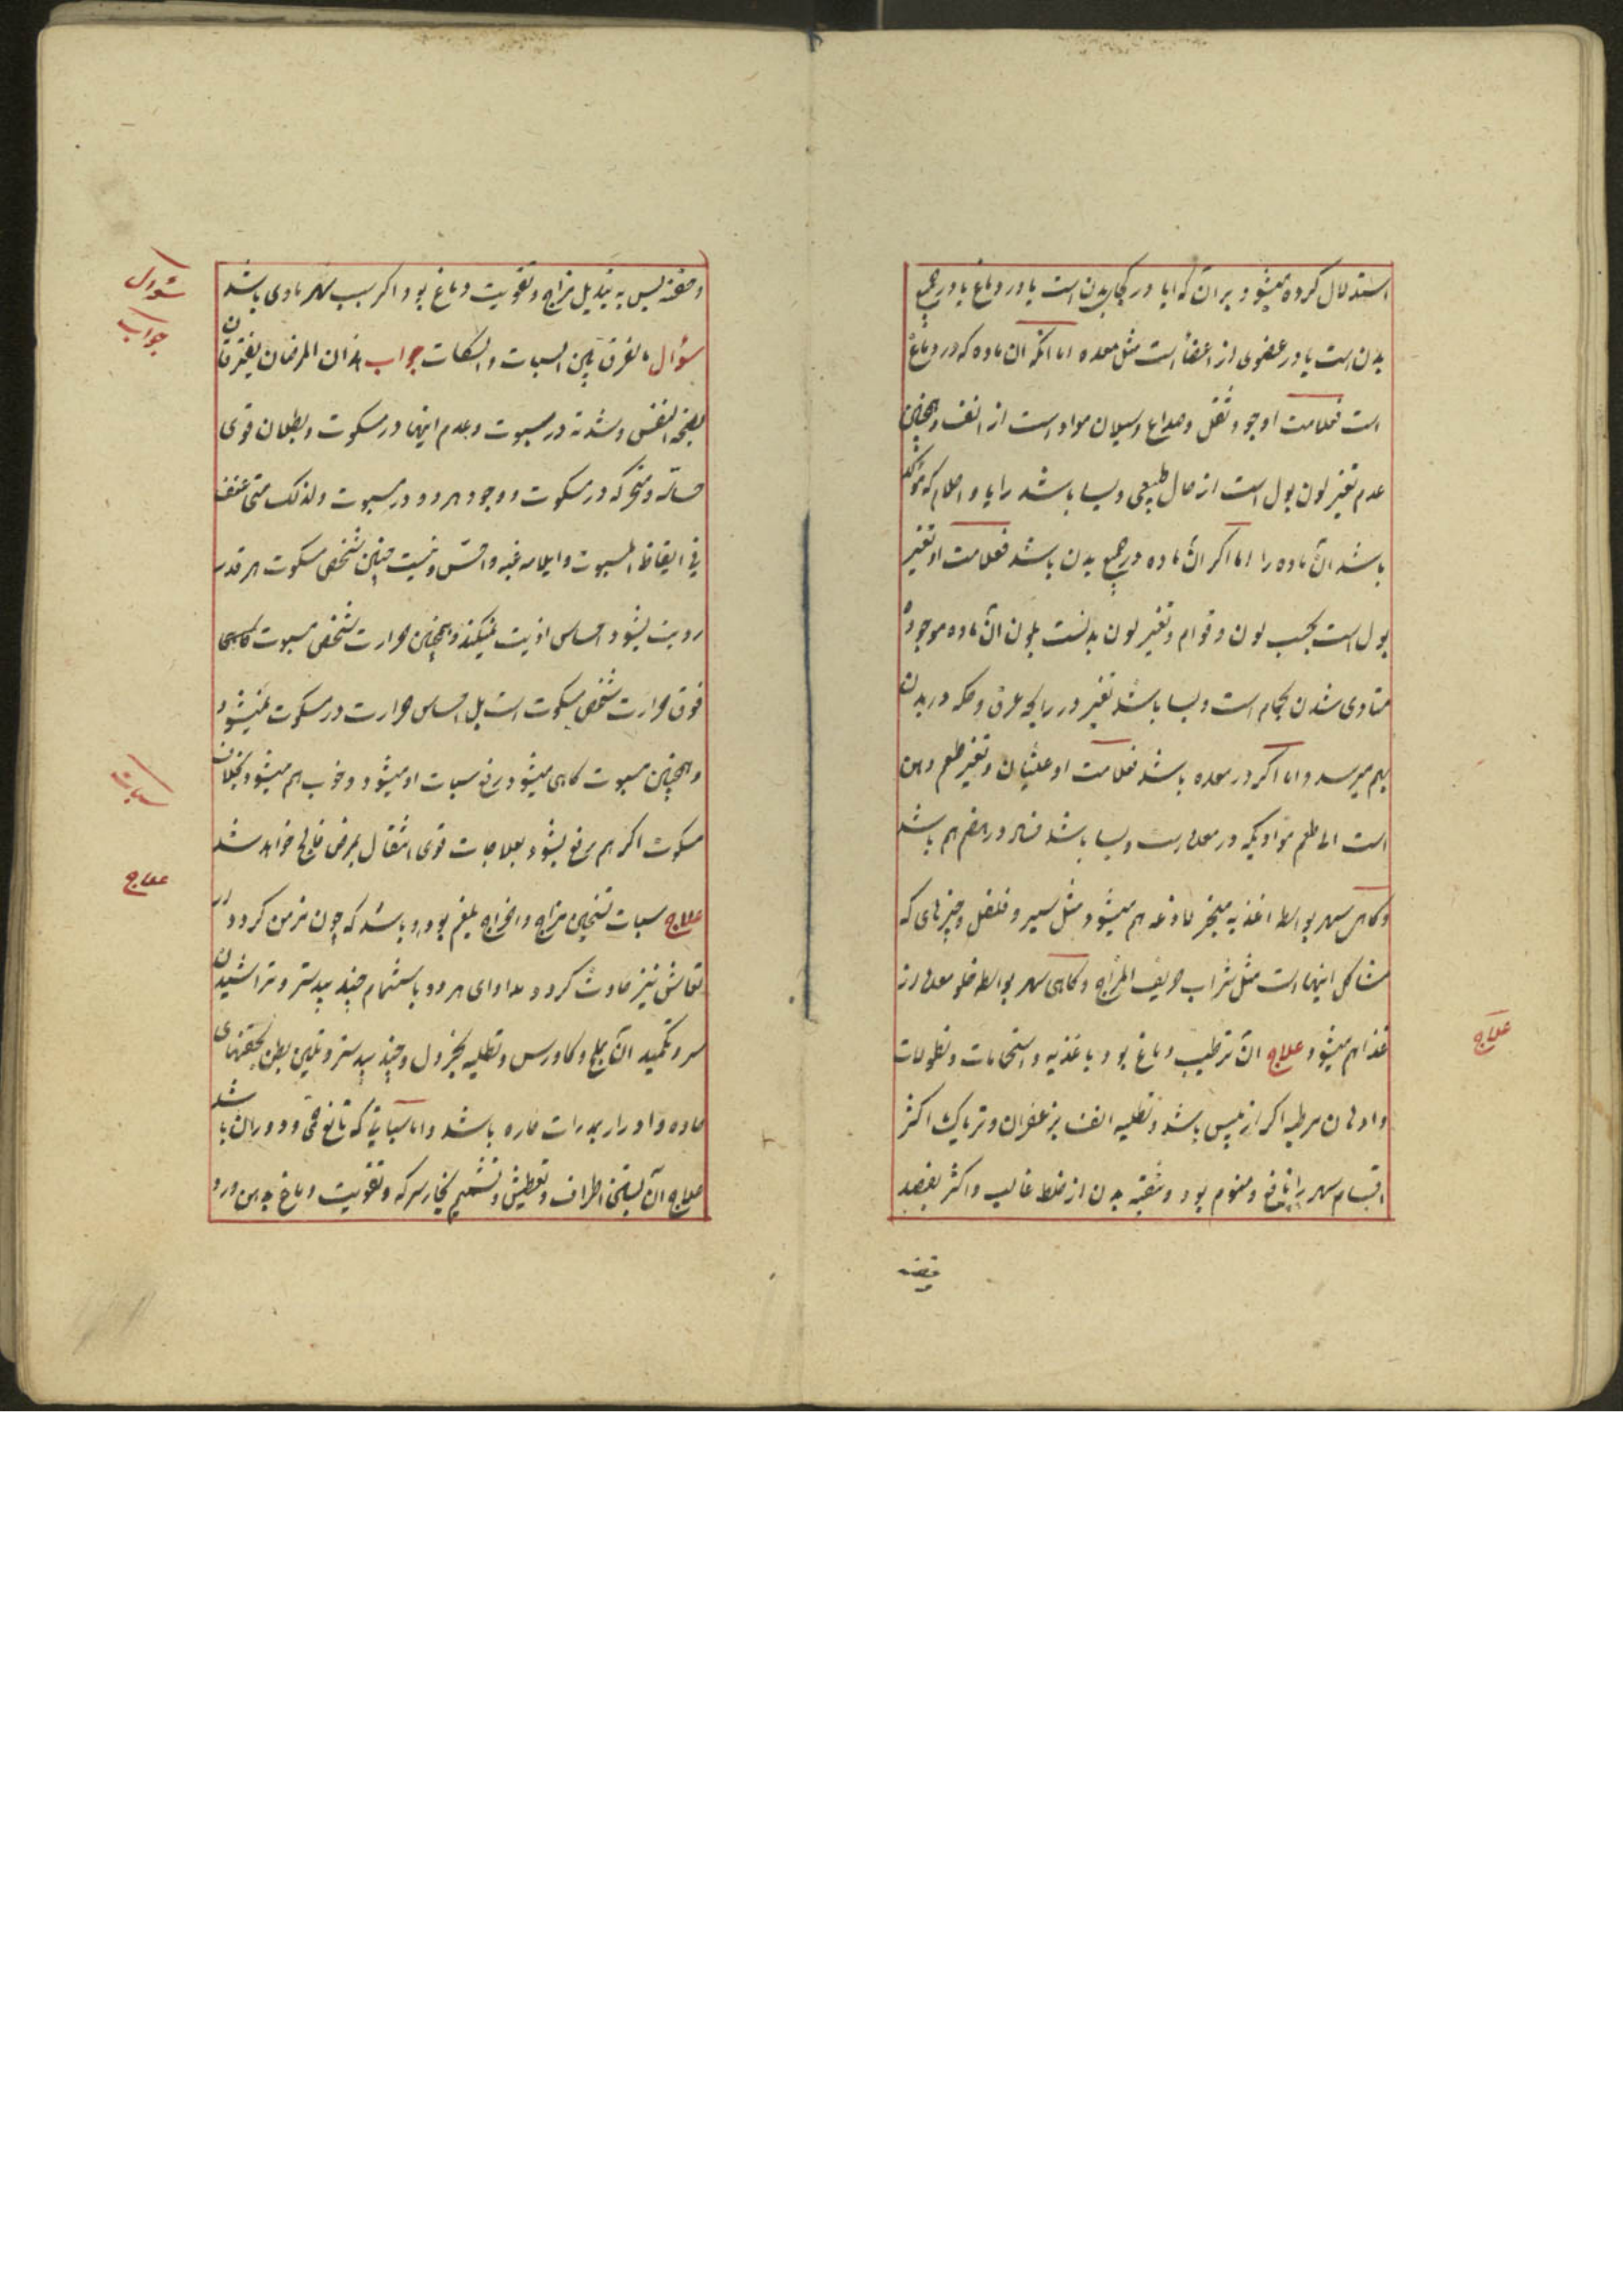 استدلال کرده میشود بر آن که آیا در کجای بدن است یا در دماغ یا در جمیع
بدن است یا در عضوی از اعضا است مثل معده اما اگر آن ماده که در دماغ
است فعلامت او وجود ثقل و صداع و سیلان مواد است از انف و همچنین
عدم تغیر لون بول است از حال طبیعی و بسا باشد رایا و احلام که
باشد آن ماده را اما اگر آن ماده در جمیع بدن باشد فعلامت او تغیر
بول است بحسب لون و قوام و تغیر لون بدنست بلون آن ماده موجوده
متاوی شدن بحمام است و بسا باشد تغیر در رایحه عرق و حکه در بدن
بهم میرسد و اما اگر در معده باشد فعلامت او غثیان و تغیر طعم دهن
است الی طعم موادیکه در معده است و بسا باشد فساد در هضم هم باشد
و کاهی سهر بواسطه اغذیه مبخره لاذعه هم میشود مثل سیر و فلفل و چیزهای که
مشاکل اینها است مثل شراب حریف المزاج و کاهی سهر بواسطه خلو معده از
غذا هم میشود علاج آن ترطیب دماغ بود باغذیه و استحمامات و نطولات
و ادهان مرطبه اکر از یبس باشد و تطلیه انف بزعفران و تریاک اکثر
اقسام سهر را نافع و منوم بود و تنقیه بدن از خلط غالب و اکثر بفصد
علاج
و حقنه پس به تبدیل مزاج و تقویت دماغ بود اکر سبب سهر مادی باشد
سؤال ما الفرق بین السبات و السکات جواب هذان المرضان یفترقان
بصحة النفس و شدته در مسبوت و عدم اینها در مسکوت و بطلان قوی
حساسه و متحرکه در مسکوت و وجود هر دو در مسبوت و لذلک متی عنف
فی ایقاظ المسبوت و ایلامه تنبه و احس و نیست چنین شخص مسکوت هر قدر
اذیت بشود احساس اذیت نمیکند و همچنین حرارت شخص مسبوت
فوق حرارت شخص مسکوت است بل احساس حرارت در مسکوت نمیشود
و همچنین مسبوت کاهی میشود رفع سبات او میشود و خوب هم میشود بخلاف
مسکوت اکر هم رفع بشود بعلاجات قوی انتقال بمرض فالج خواهد شد
علاج سبات تسخین مزاج و اخراج بلغم بود و باشد که چون مزمن کردد
تعاش نیز حادث کردد مداوای هر دو باستشمام جند بیدستر و تراشیدن
سر و تکمید آن بملح و کاورس و تطلیه بخردل و جند بیدستر و تلیین بطن بحقنهای
حاده و ادرار بمدرات حاره باشد و اما سباتی که تابع حمی و دوران باشد
علاج آن بستن اطراف و تعطیش و تشمیم بخار سرکه و تقویت دماغ بدهن ورد
سؤال
جواب
سبات
علاج